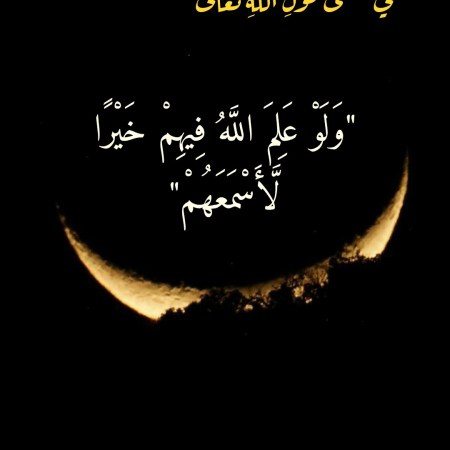 قول الله تعالى
"وَلَوْ عَلِمَ اللَّهُ فِيهِمْ خَيْرًا
لَّأَسْمَعَهُمْ"